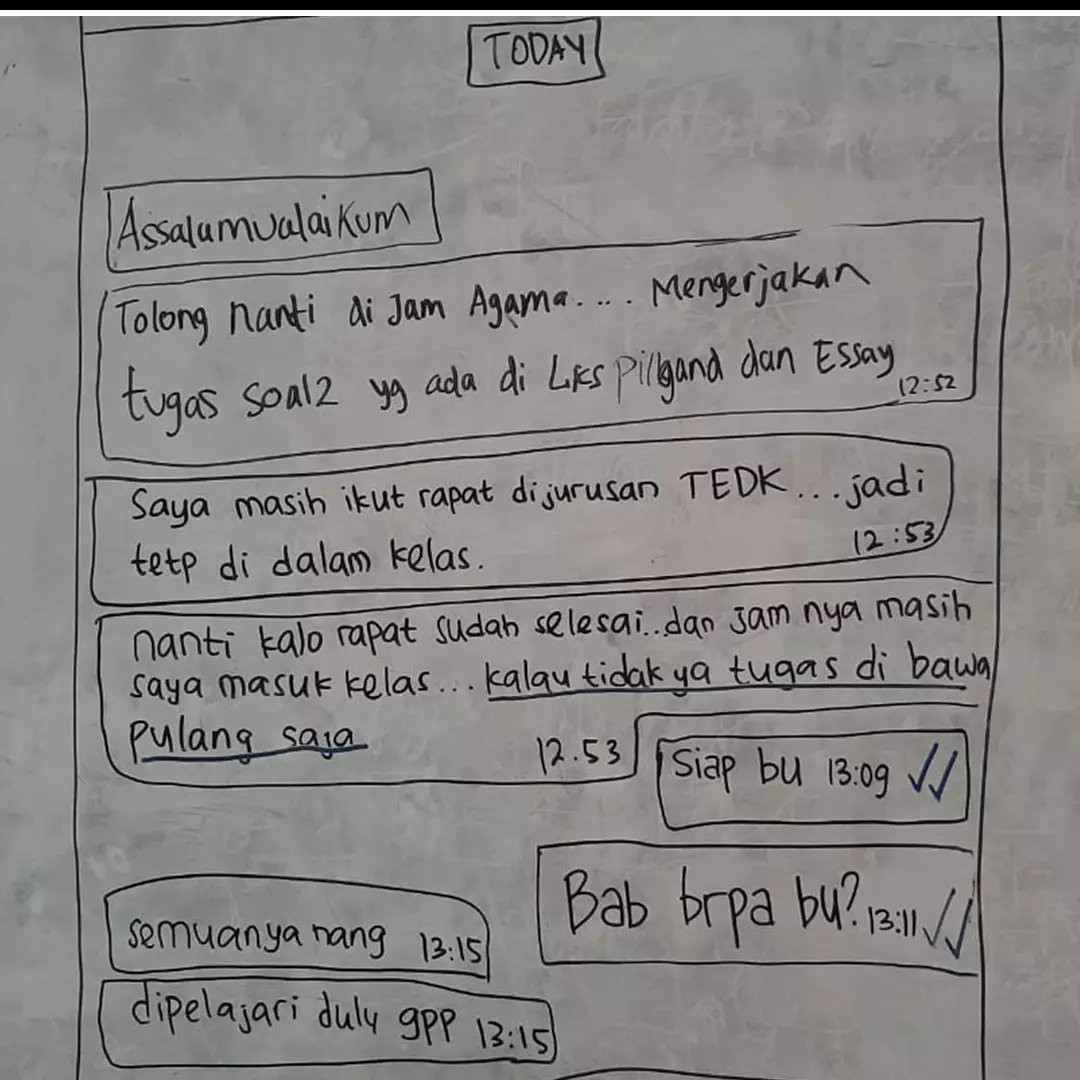 TODAY
Assalamualaikum
Tolong nanti di Jam Agama.... Mengerjakan
tugas soal2 yg ada di Lks pilgand dan Essay
12:52
Saya masih ikut rapat dijurusan TEDK...jadi
tetp di dalam kelas.
12:53
nanti kalo rapat sudah selesai..dan jam nya masih
saya masuk kelas... kalau tidak ya tugas di bawa
pulang saja
12.53
Siap bu 13:09
Bab brpa bu? 13:11
semuanya nang 13:15
dipelajari dulu gpp 13:15